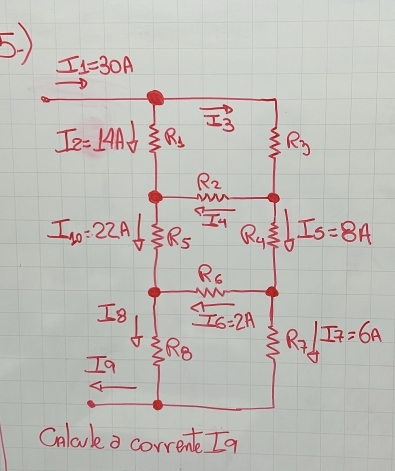 5.)
I1=30A
I3
I2=14A
R1
R3
R2
I4
I10=22A
R5
R4
I5=8A
R6
I6=2A
I8
R8
R7
I7=6A
I9
Calcule a corrente I9